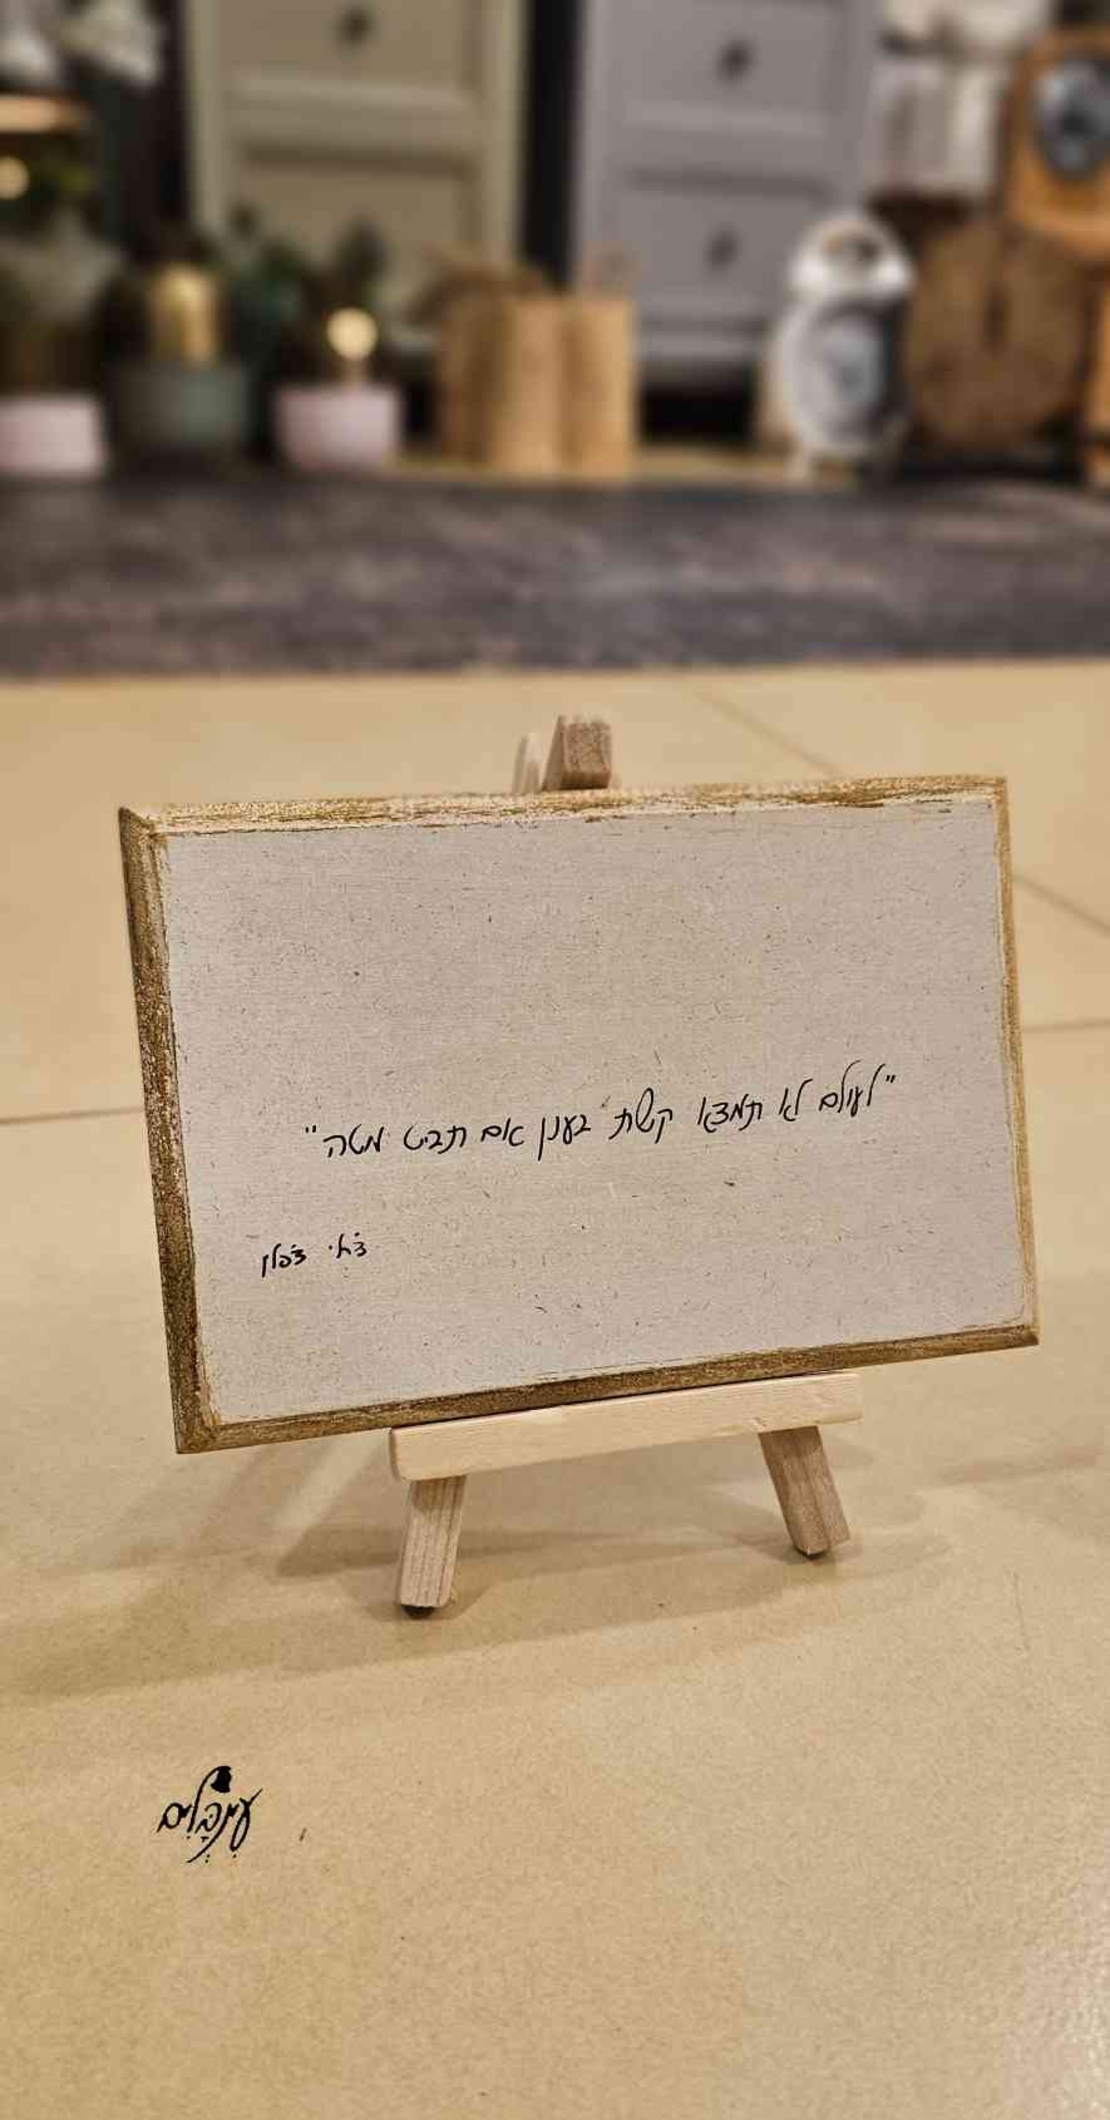 "לעולם לא תמצא קשת בענן אם תביט מטה"
צ'רלי צ'פלין